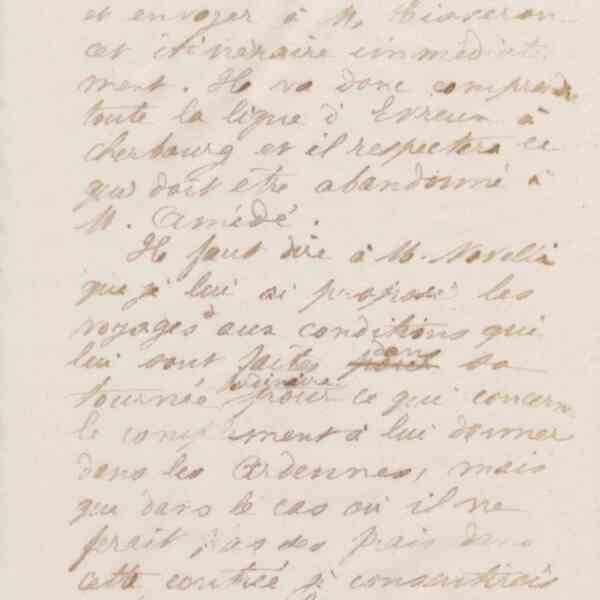 et envoyer à M.
cet itinéraire immédiate
ment. Il va donc comprendre
toute la ligne d'Evreux à
Cherbourg et il respectera ce
qui doit être abandonné à
M. Amédé.
Il faut dire à M. Novelli
que je lui ai proposé les
voyages aux conditions qui
lui sont faites dans sa
tournée ordinaire pour ce qui concerne
le complément à lui donner
dans les Ardennes, mais
que dans le cas où il ne
ferait pas ses frais dans
cette contrée je consentirais